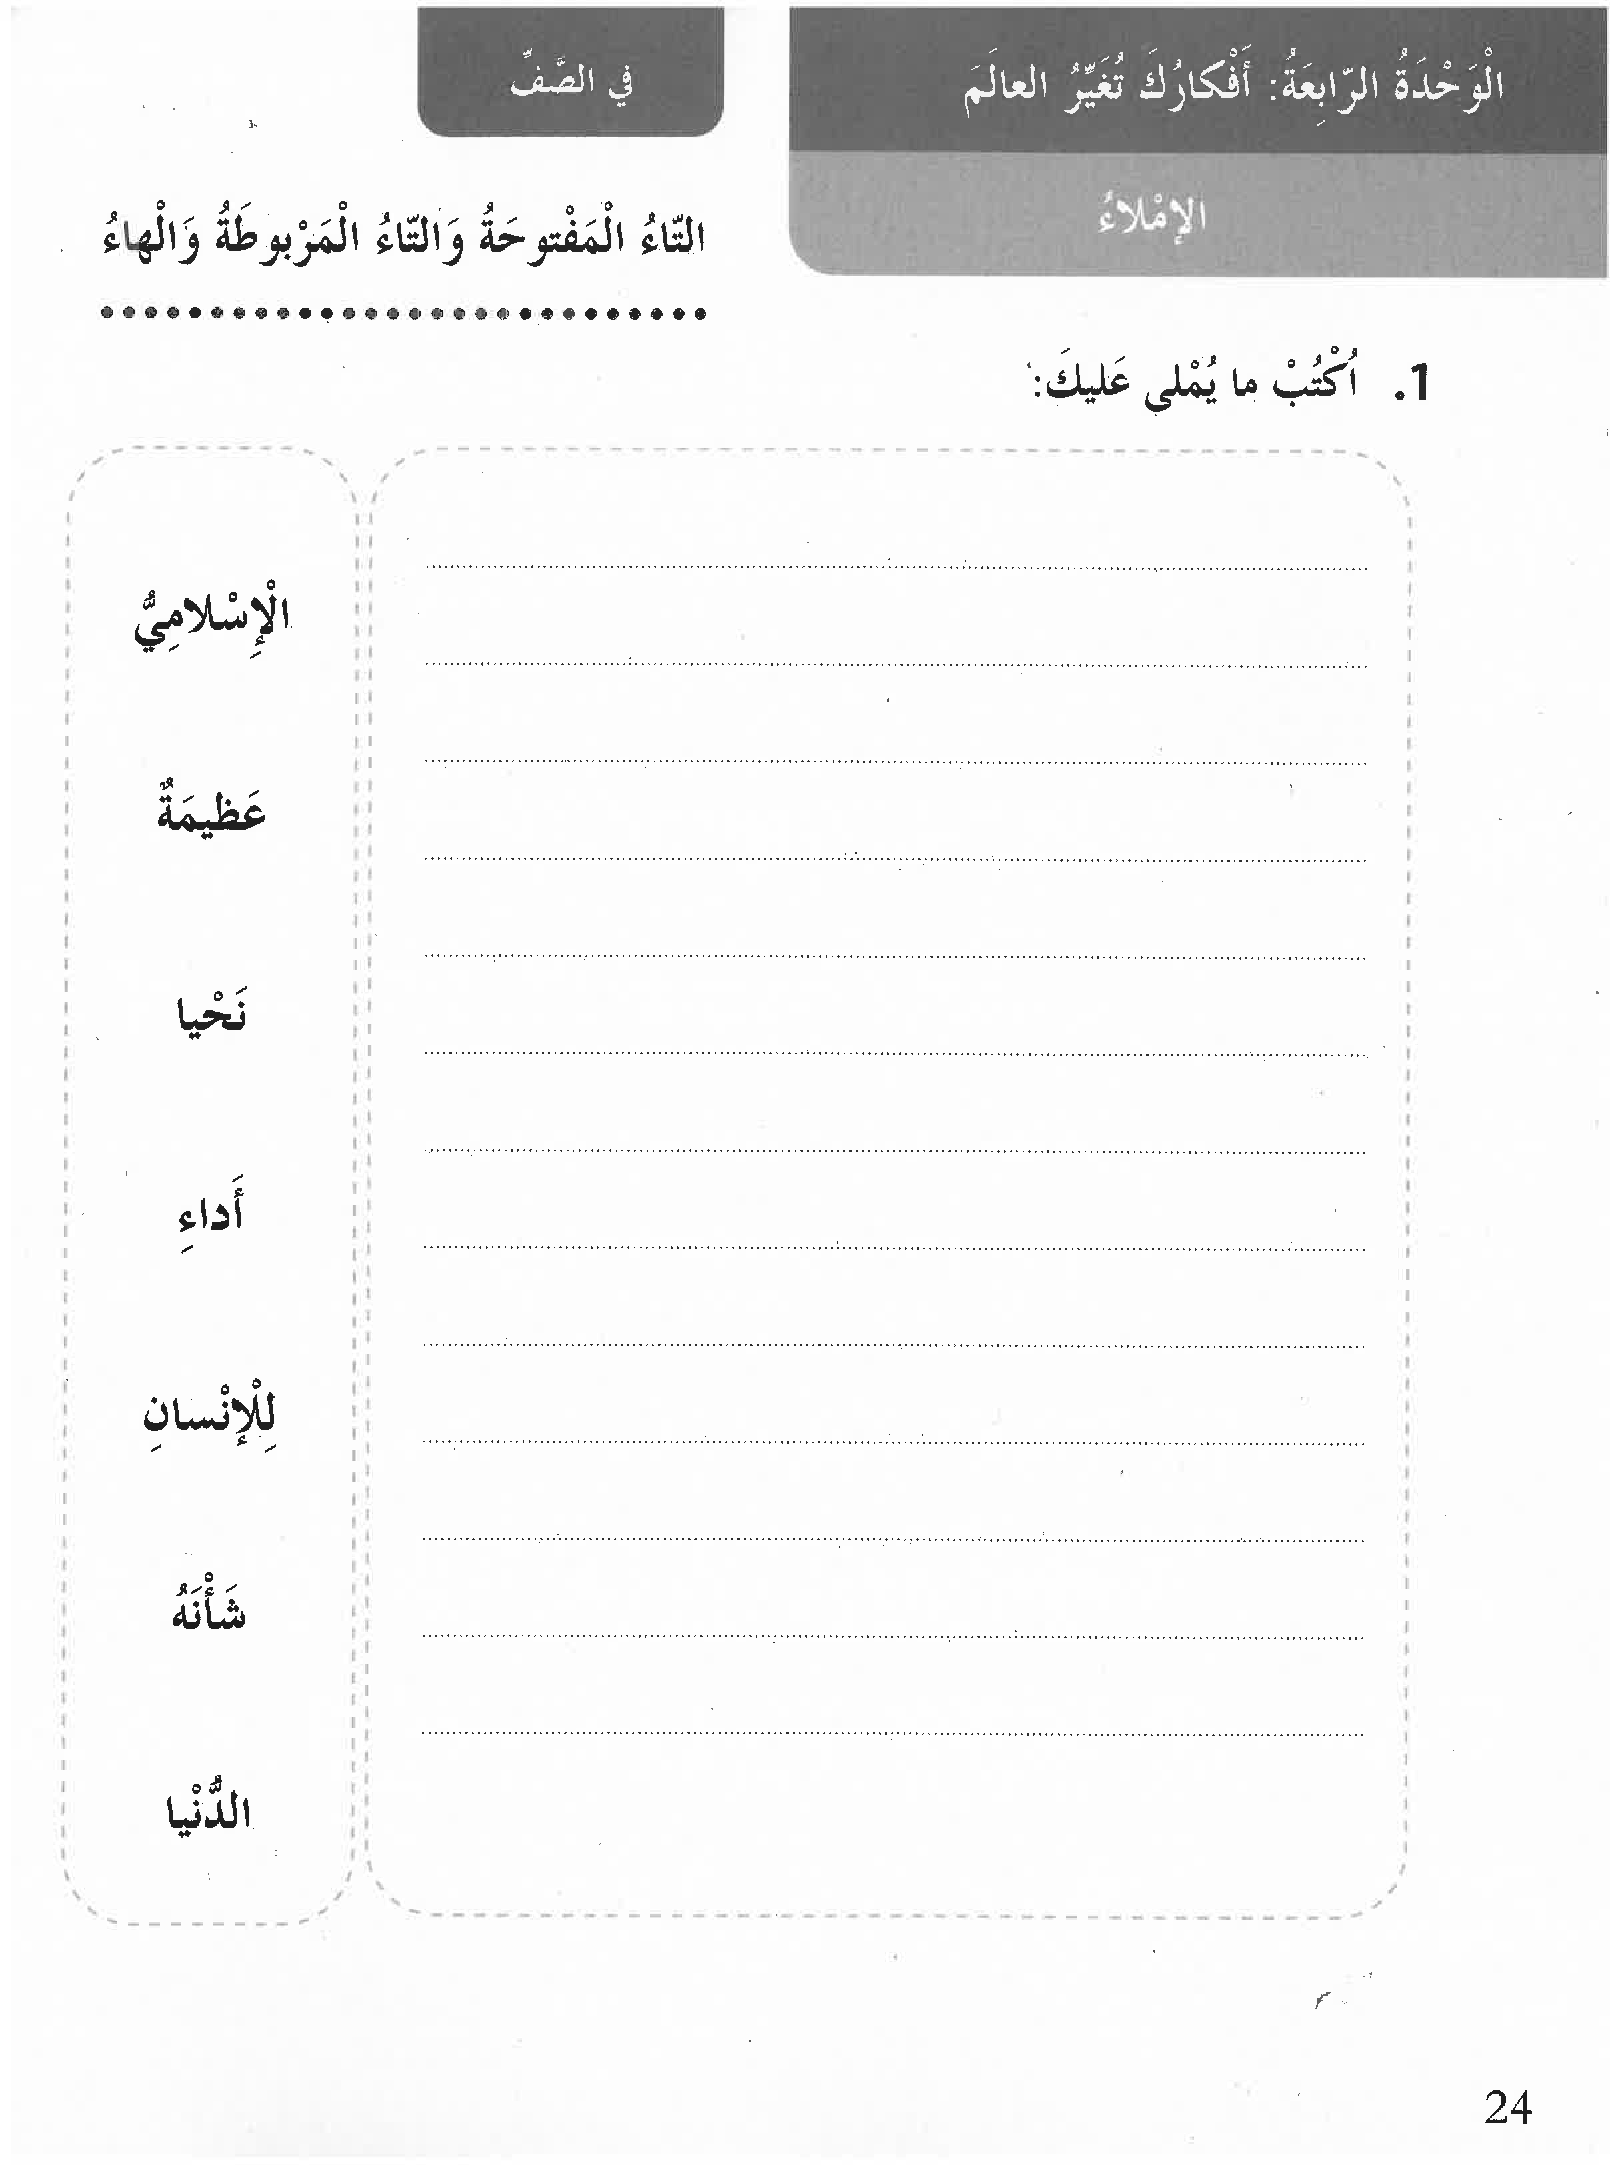 الْوَحْدَةُ الرّابِعَةُ: أَفْكارُكَ تُغَيِّرُ العالَمَ
في الصَّفِّ
الإمْلاءُ
التّاءُ الْمَفْتوحَةُ وَالتّاءُ الْمَرْبوطَةُ وَالْهاءُ
1. اُكْتُبْ ما يُمْلى عَليكَ:
الْإِسْلامِيُّ
عَظيمَةٌ
نَحْيا
أَداءِ
لِلْإِنْسانِ
شَأْنَهُ
الدُّنْيا
24